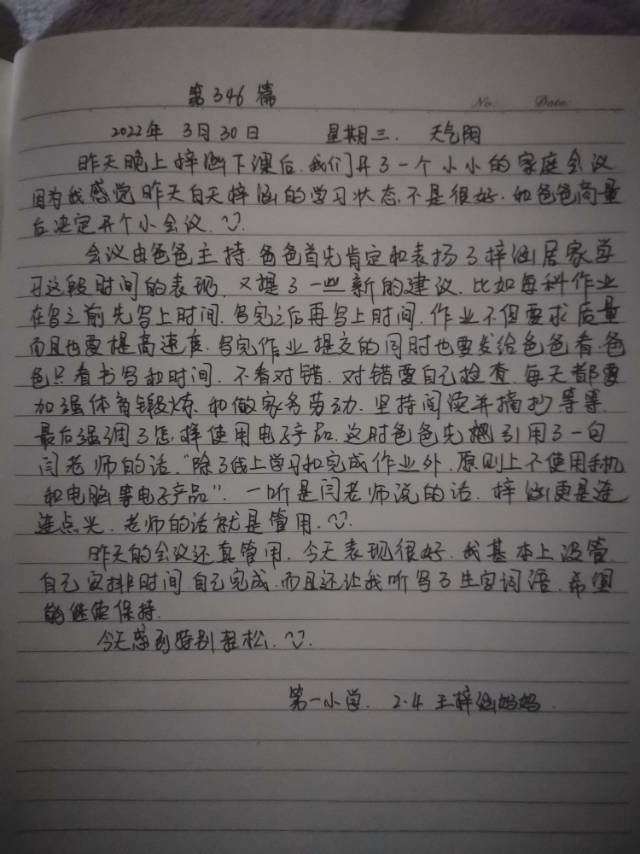 第346篇
No. Date.
2022年 3月30日 星期三. 天气阴
昨天晚上梓涵下课后.我们开了一个小小的家庭会议
因为我感觉昨天白天梓涵的学习状态不是很好.和爸爸商量
后决定开个小会议.
会议由爸爸主持.爸爸首先肯定和表扬了梓涵居家学
习这段时间的表现.又提了一些新的建议.比如每科作业
在写之前先写上时间.写完之后再写上时间.作业不但要求质量
而且也要提高速度.写完作业提交的同时也要发给爸爸看.爸
爸只看书写和时间.不看对错.对错要自己检查.每天都要
加强体育锻炼.和做家务劳动.坚持阅读并摘抄等等.
最后强调了怎样使用电子产品.这时爸爸先引用了一句
闫老师的话."除了线上学习和完成作业外.原则上不使用手机
和电脑等电子产品".一听是闫老师说的话.梓涵更是连
连点头.老师的话就是管用.
昨天的会议还真管用.今天表现很好.我基本上没管
自己安排时间自己完成.而且还让我听写了生字词语.希望
能继续保持.
今天感到特别轻松.
第一小学. 2.4 王梓涵妈妈.